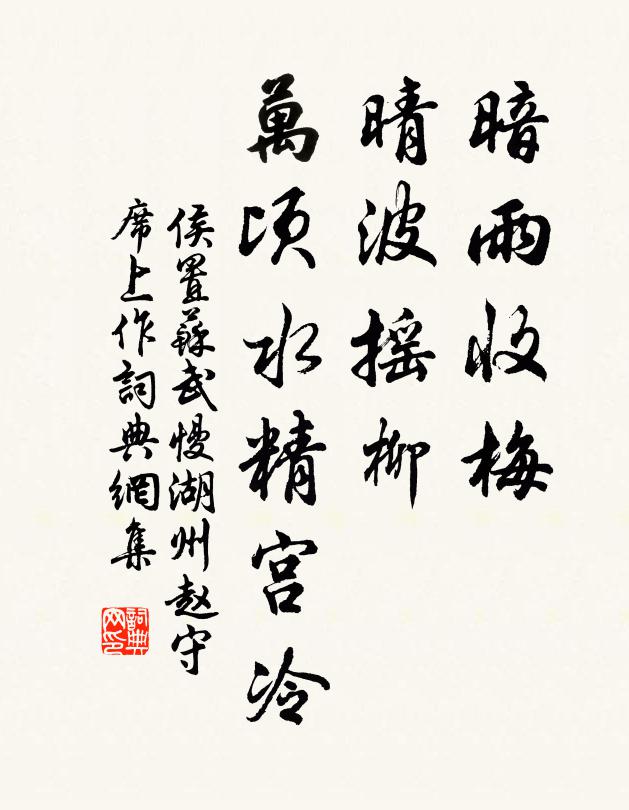 暗雨收梅
晴波摇柳
萬頃水精宫冷
侯置蘇武慢湖州赵守
席上作詞典網集
詞典网印